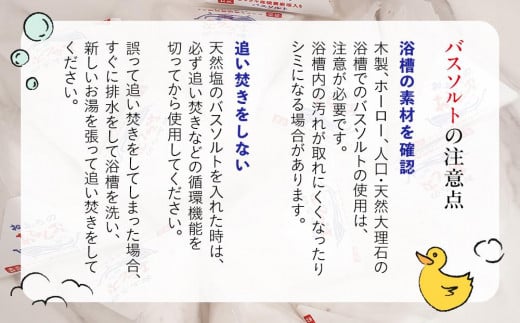 バスソルトの注意点
浴槽の素材を確認
木製、ホーロー、人口・天然大理石の
浴槽でのバスソルトの使用は、
注意が必要です。
浴槽内の汚れが取れにくくなったり
シミになる場合があります。
追い焚きをしない
天然塩のバスソルトを入れた時は、
必ず追い焚きなどの循環機能を
切ってから使用してください。
誤って追い焚きをしてしまった場合、
すぐに排水をして浴槽を洗い、
新しいお湯を張って追い焚きをして
ください。
バスソルト